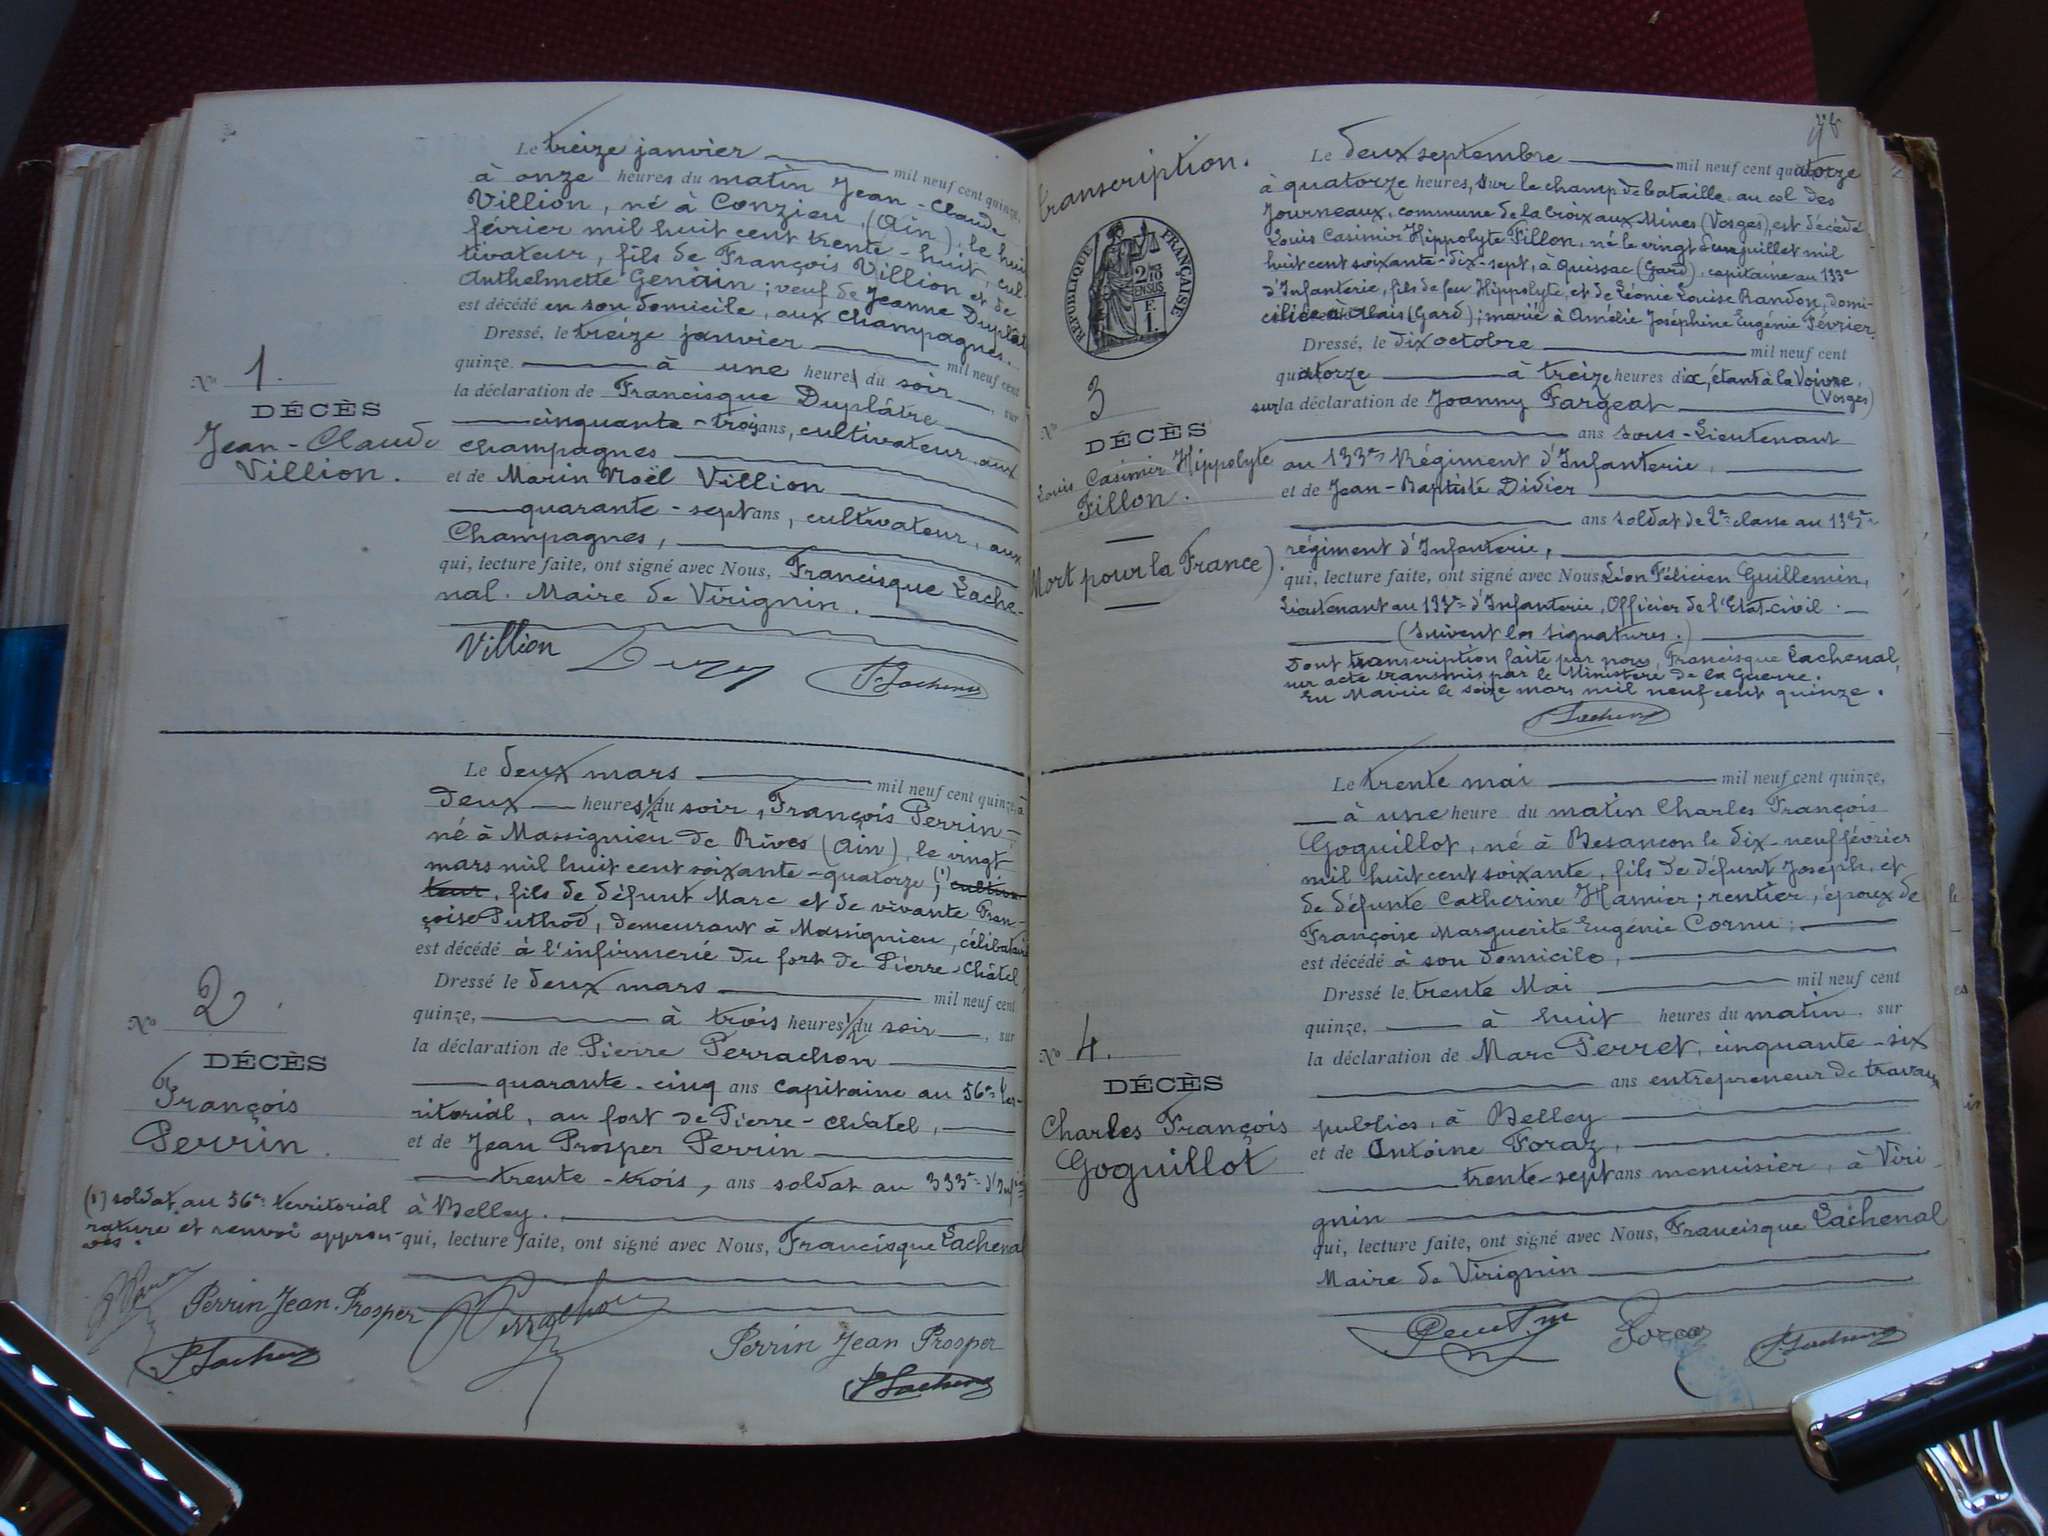 Le treize janvier mil neuf cent quinze,
à onze heures du matin Jean-Claude
Villion, né à Conzieu, (Ain), le huit
février mil huit cent trente-huit, cul-
tivateur, fils de François Villion et de
Anthelmette Genain; veuf de Jeanne Duplâtre
est décédé en son domicile, aux Champagnes.
Dressé, le treize janvier mil neuf cent
quinze. à une heures du soir, sur
la déclaration de Francisque Duplâtre
cinquante-trois ans, cultivateur, aux
Champagnes
et de Marin Noël Villion
quarante-sept ans, cultivateur, aux
Champagnes,
qui, lecture faite, ont signé avec Nous, Francisque Lache-
nal. Maire de Virignin.
No 1.
DÉCÈS
Jean-Claude
Villion.
Villion
Lachenal
Le deux mars mil neuf cent quinze, à
deux heures 1/2 du soir, François Perrin
né à Massignieu de Rives (Ain), le vingt
mars mil huit cent soixante-quatorze, (1) cultiva-
teur, fils de défunt Marc et de vivante Fran-
çoise Puthod, demeurant à Massignieu, célibataire
est décédé à l'infirmerie du fort de Pierre-Châtel
Dressé le deux mars mil neuf cent
quinze, à trois heures 1/2 du soir, sur
la déclaration de Pierre Perrachon
quarante-cinq ans capitaine au 56e ter-
ritorial, au fort de Pierre-Châtel,
et de Jean Prosper Perrin
trente-trois, ans soldat au 333e d'Infie
à Belley.
qui, lecture faite, ont signé avec Nous, Francisque Lachenal
No 2.
DÉCÈS
François
Perrin.
(1) soldat au 56e territorial
rature et renvoi approu-
vés.
Perrin Jean Prosper
Lachenal
Perrachon
Perrin Jean Prosper
Lachenal
Transcription.
RÉPUBLIQUE FRANÇAISE
2/10
EN SUS
F.
1.
No 3
DÉCÈS
Louis Casimir Hippolyte
Fillon.
Mort pour la France).
Le deux septembre mil neuf cent quatorze
à quatorze heures, sur le champ de bataille au col des
Journeaux, commune de la Croix aux Mines (Vosges), est décédé
Louis Casimir Hippolyte Fillon, né le vingt deux juillet mil
huit cent soixante-dix-sept, à Quissac (Gard), capitaine au 133e
d'Infanterie, fils de feu Hippolyte, et de Léonie Louise Randon, domi-
ciliée à Alais (Gard); marié à Amélie Joséphine Eugénie Février.
Dressé, le dix octobre mil neuf cent
quatorze à treize heures dix, étant à la Voivre,
(Vosges)
sur la déclaration de Joanny Fargeat
ans sous-Lieutenant
au 133e Régiment d'Infanterie,
et de Jean-Baptiste Didier
ans soldat de 2e classe au 133e
régiment d'Infanterie,
qui, lecture faite, ont signé avec Nous Léon Félicien Guillemin,
Lieutenant au 133e d'Infanterie, Officier de l'Etat-civil.
(Suivent les signatures.)
Dont transcription faite par nous, Francisque Lachenal,
sur acte transmis par le Ministère de la Guerre.
En Mairie le seize mars mil neuf cent quinze.
Lachenal
Le trente mai mil neuf cent quinze,
à une heure du matin Charles François
Goguillot, né à Besançon le dix-neuf février
mil huit cent soixante, fils de défunt Joseph, et
de défunte Catherine Hamier; rentier, époux de
Françoise Marguerite Eugénie Cornu;
est décédé à son domicile,
Dressé le trente Mai mil neuf cent
quinze, à huit heures du matin, sur
la déclaration de Marc Perret, cinquante-six
ans entrepreneur de travaux
publics, à Belley
et de Antoine Foraz,
trente-sept ans menuisier, à Viri-
gnin
qui, lecture faite, ont signé avec Nous, Francisque Lachenal
Maire de Virignin
No 4.
DÉCÈS
Charles François
Goguillot
Foraz
Lachenal